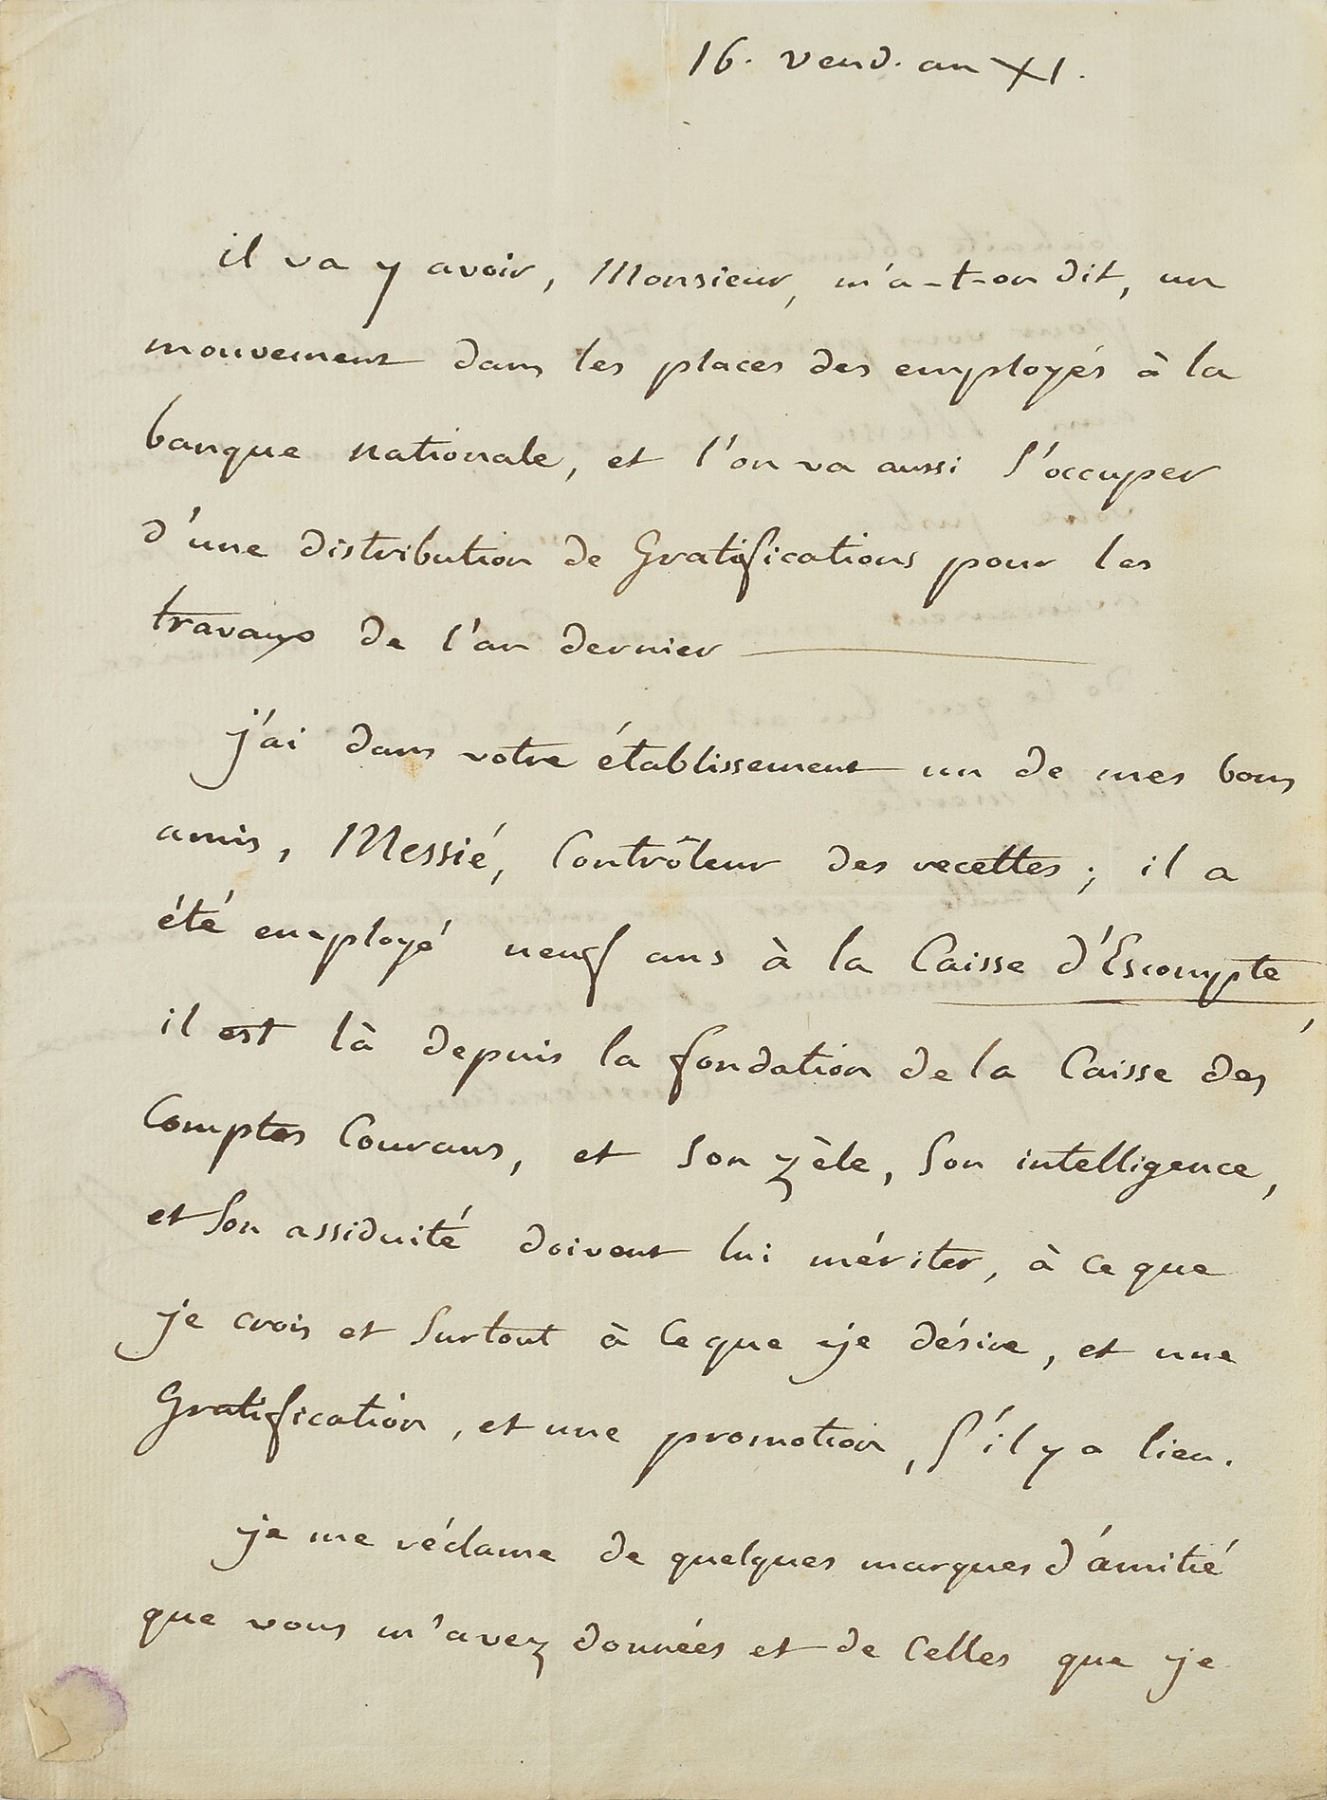 16. vend. an XI.
il va y avoir, Monsieur, m'a-t-on dit, un
mouvement dans les places des employés à la
banque nationale, et l'on va aussi s'occuper
d'une distribution de Gratifications pour les
travaux de l'an dernier
j'ai dans votre établissement un de mes bons
amis, Messié, Contrôleur des recettes ; il a
été employé neuf ans à la Caisse d'Escompte,
il est là depuis la fondation de la Caisse des
Comptes Courans, et son zèle, son intelligence,
et son assiduité doivent lui mériter, à ce que
je crois et surtout à ce que je désire, et une
Gratification, et une promotion, s'il y a lieu.
je me réclame de quelques marques d'amitié
que vous m'avez données et de celles que je